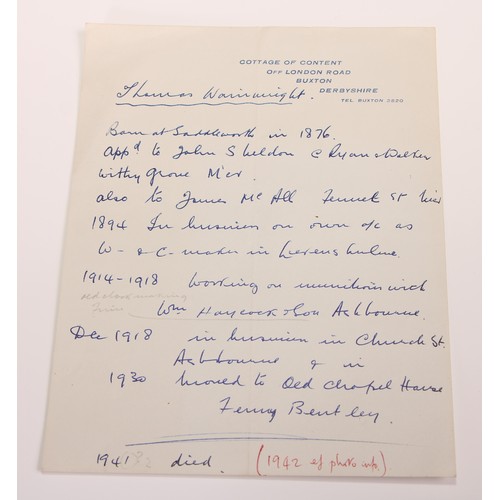 COTTAGE OF CONTENT
OFF LONDON ROAD
BUXTON
DERBYSHIRE
TEL. BUXTON
Thomas Wainwright.
Born at Saddleworth in 1876.
appd to John Sheldon c Ryans Walker
Withy Grove M'cr
also to James McAll Fennel St M'cr
1894 In business on own a/c as
W- & C- maker in Levenshulme.
1914-1918 Working on munitions with
old clock making
Firm
Wm Haycock & Son Ashbourne.
Dec 1918 in business in Church St.
Ashbourne & in
1930 moved to Old Chapel House
Fenny Bentley.
1941 died. (1942 of photo info.)